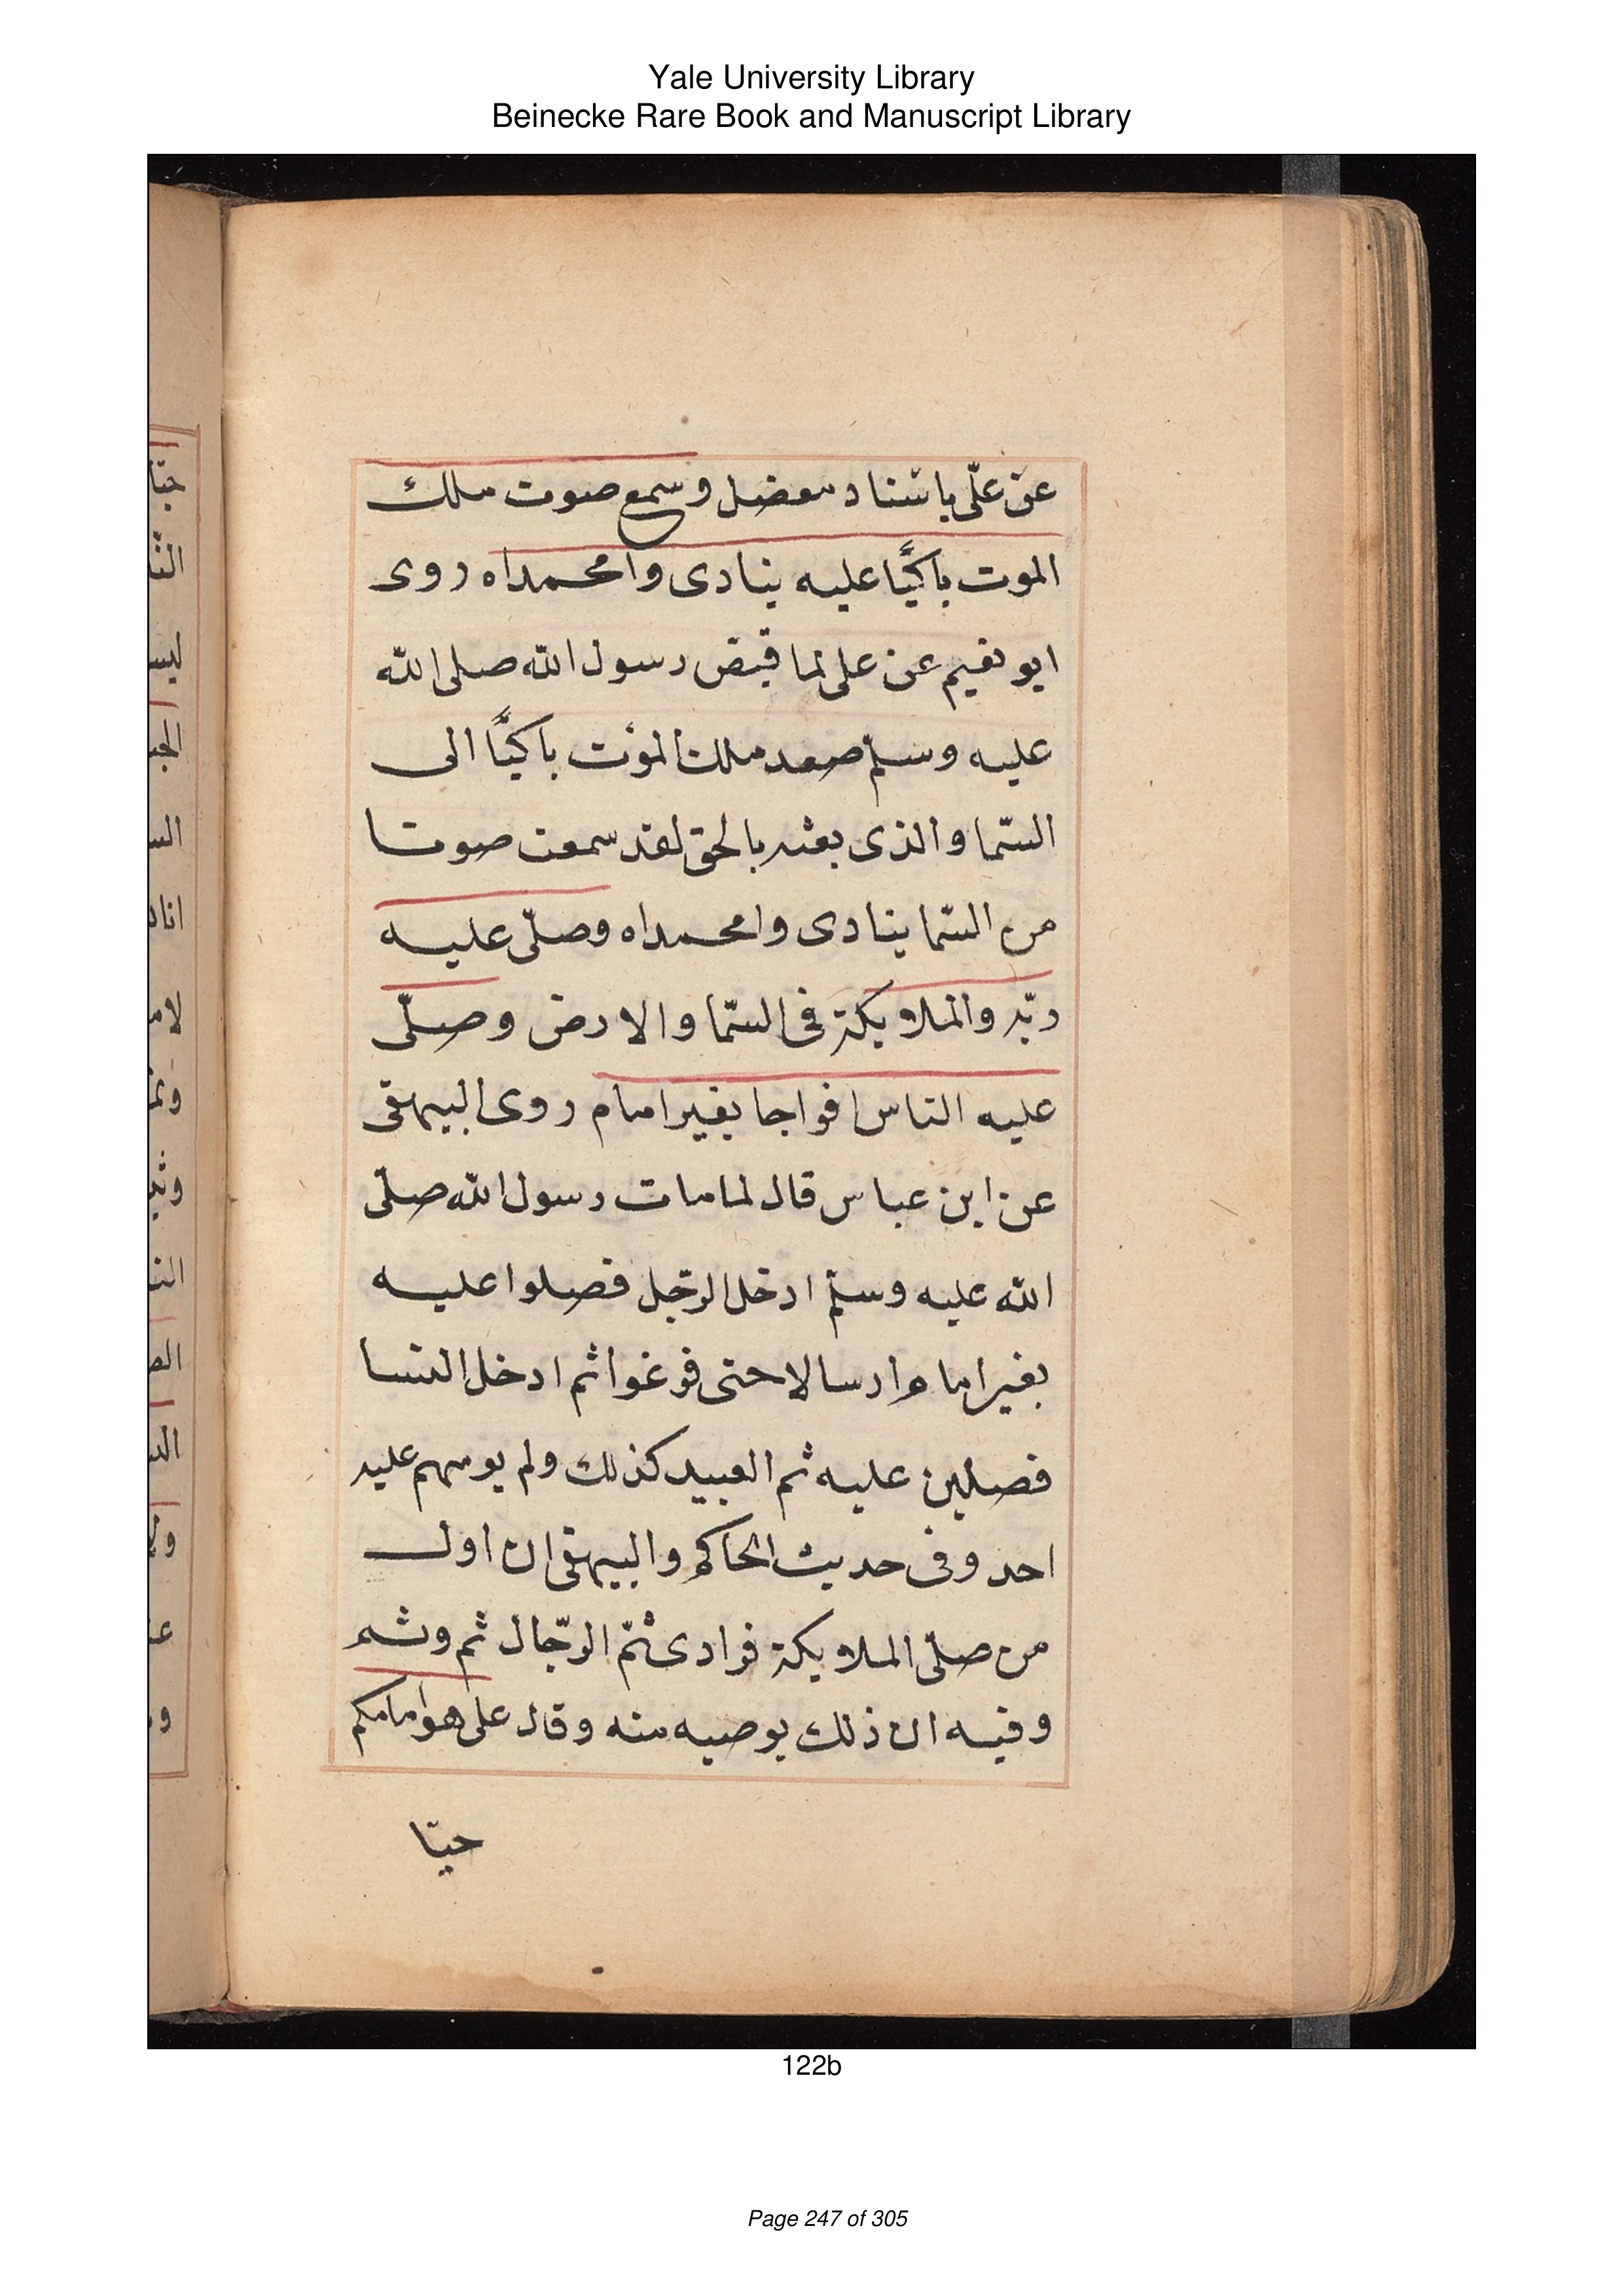 Yale University Library
Beinecke Rare Book and Manuscript Library
عن علّى باسناد معضل وسمع صوت ملك
الموت باكيًا عليه ينادى وامحمداه روى
ابو نعيم عن على لما قبض رسول الله صلى الله
عليه وسلّم صعد ملك الموت باكيًا الى
السّما والذى بعثه بالحق لقد سمعت صوتا
من السّما ينادى وامحمداه وصلّى عليه
ربّه والملايكة فى السّما والارض وصلّى
عليه الناس افواجا بغير امام روى البيهقى
عن ابن عباس قال لما مات رسول الله صلّى
الله عليه وسلّم ادخل الرّجل فصلوا عليه
بغير امام وارسالا حتى فرغوا ثم ادخل النسا
فصلين عليه ثم العبيد كذلك ولم يومهم عليه
احد وفى حديث الحاكم والبيهقى ان اول
من صلّى الملايكة فرادى ثمّ الرّجال ثم وثم
وفيه ان ذلك بوصيه منه وقال على هو امامكم
حيّا
122b
Page 247 of 305